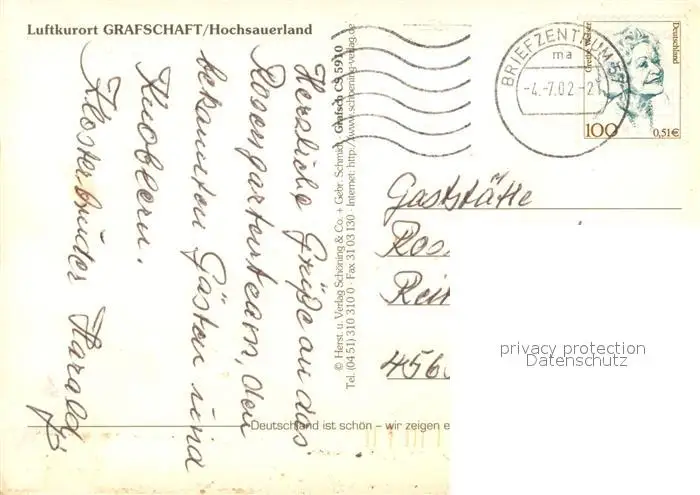 Luftkurort GRAFSCHAFT/Hochsauerland
Herzliche Grüße an das
Rosengartenteam, den
bekannten Gästen und
Knoblern.
Klosterbruder Harald
© Herst. u. Verlag Schöning & Co. + Gebr. Schmidt
Grafsch CS 5910
Tel. (04 51) 310 310 0 · Fax 31 03 130 · Internet: http://www.schoening-verlag.de
BRIEFZENTRUM 57
ma
-4.-7.02-21
Deutschland
100
0,51€
Gaststätte
Ros
Reit
456
privacy protection
Datenschutz
Deutschland ist schön – wir zeigen e